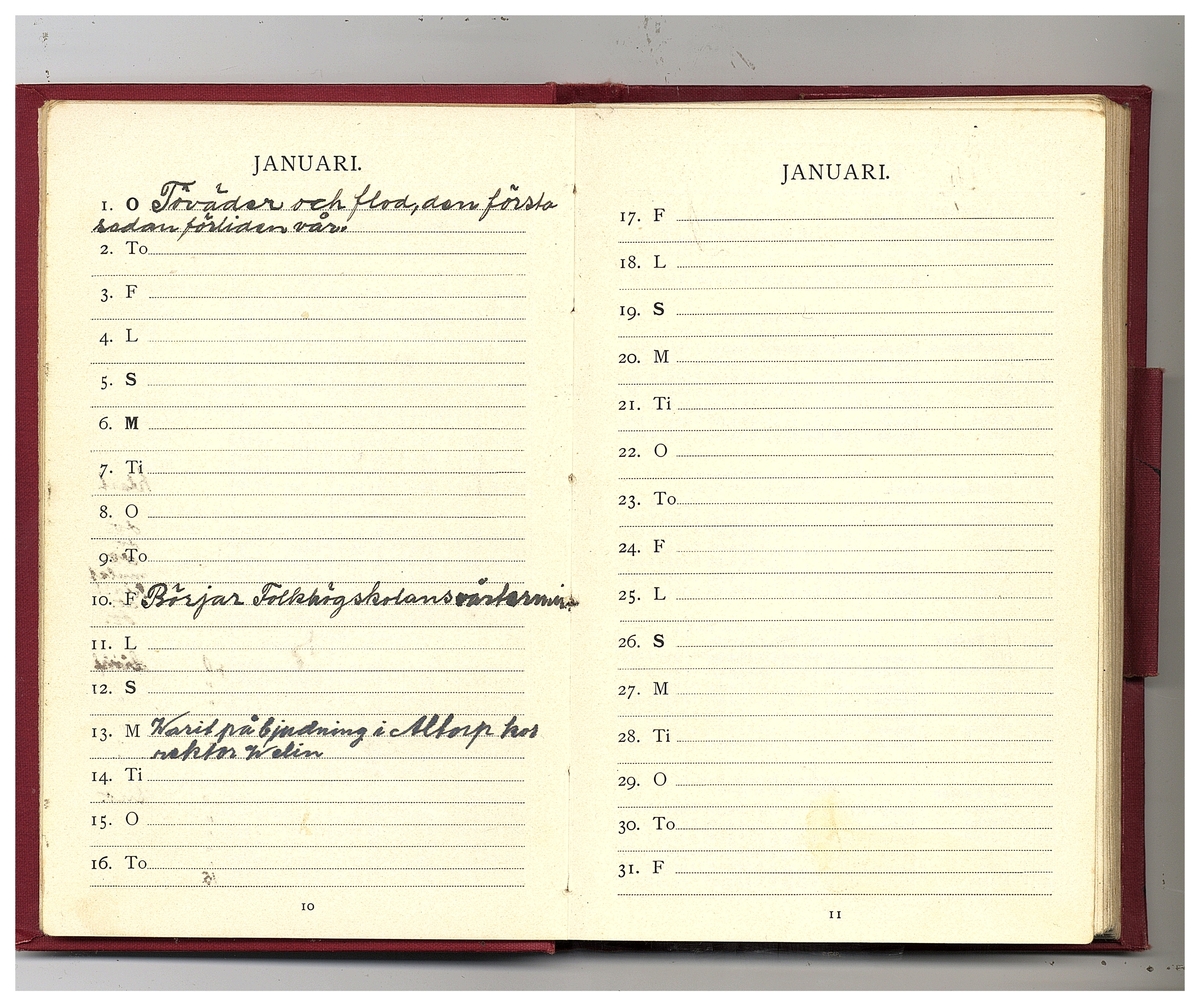 JANUARI.
1. O Töväder och flod, den första
sedan förliden vår.
2. To
3. F
4. L
5. S
6. M
7. Ti
8. O
9. To
10. F Börjar Folkhögskolans vårtermin
11. L
12. S
13. M Warit på bjudning i Altorp hos
rektor Welin
14. Ti
15. O
16. To
10
JANUARI.
17. F
18. L
19. S
20. M
21. Ti
22. O
23. To
24. F
25. L
26. S
27. M
28. Ti
29. O
30. To
31. F
11